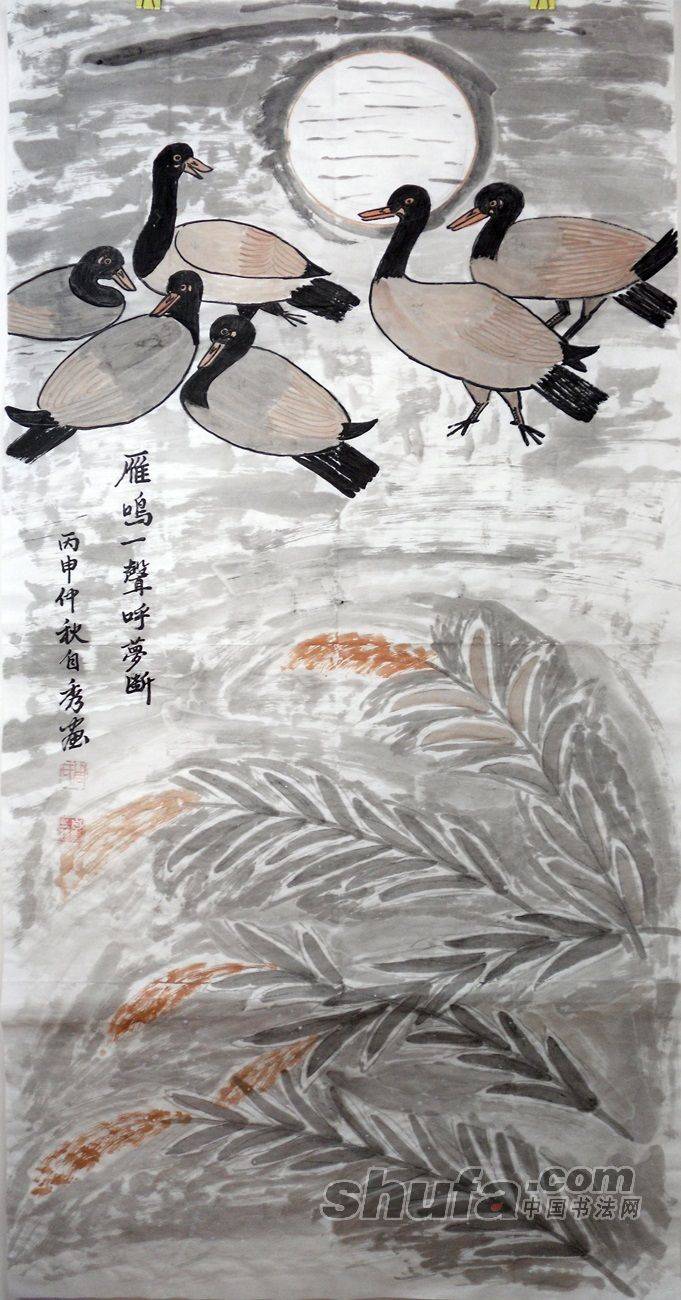 雁鳴一聲呼夢斷
丙申仲秋自秀畫
shufa.com
中国书法网